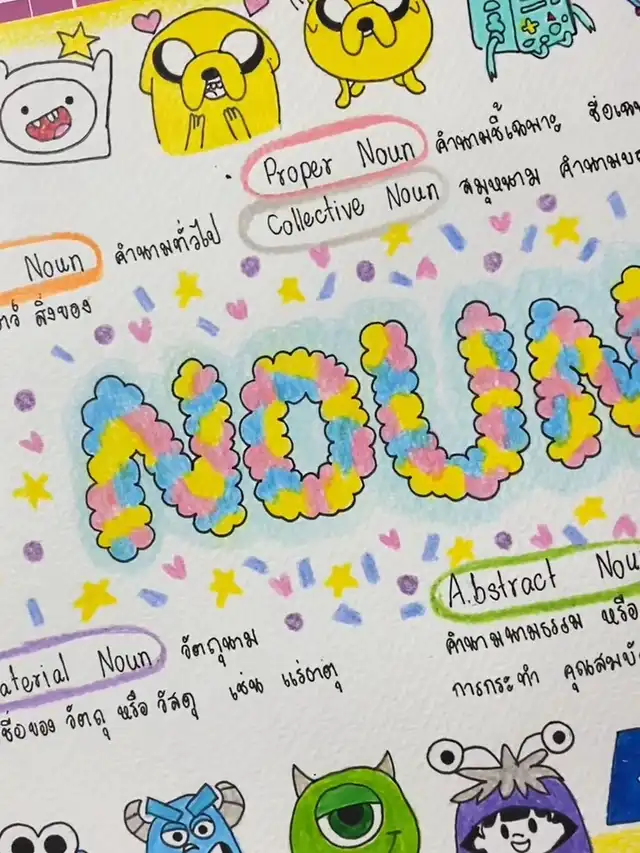 Proper Noun คำนามชี้เฉพาะ
Collective Noun สมุหนาม คำนาม
Noun คำนามทั่วไป
สิ่งของ
NOUN
Abstract
คำนามนามธรรม หรือ
การกระทำ
Noun วัตถุนาม
ชื่อของ วัตถุ หรือ วัสดุ เช่น แร่ธาตุ